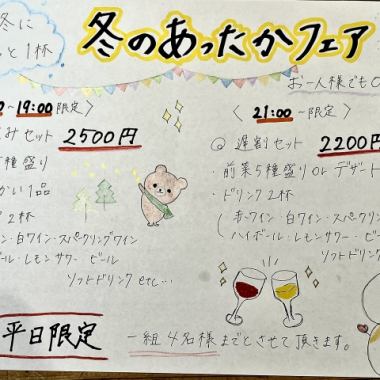 冬に
と1杯
冬のあったかフェア
お一人様でもO
~19:00限定〉
みセット 2500円
種盛り
かい1品
2杯
ン・白ワイン・スパークリングワイン
ボール・レモンサワー・ビール
ソフトドリンク etc...
〈21:00~限定〉
◎ 遅割セット 2200円
・前菜5種盛り or デザート
・ドリンク2杯
(赤ワイン・白ワイン・スパークリン
ハイボール・レモンサワー・ビー
ソフトドリン
平日限定
一組4名様までとさせて頂きます。